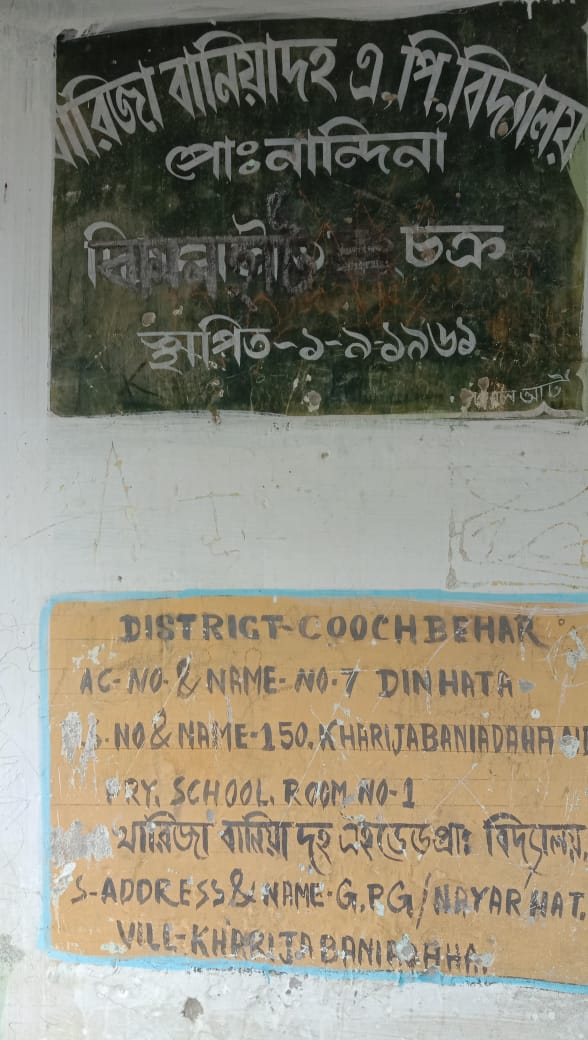 খারিজা বানিয়াদহ এ, পি, বিদ্যালয়
পোঃ নান্দিনা
চক্র
স্থাপিত-১-৯-১৯৬১
আর্ট
DISTRICT-COOCHBEHAR
AC-NO-& NAME-NO-7 DINHATA
NO & NAME-150, KHARIJABANIADAHA
PRY. SCHOOL. ROOM NO-1
খারিজা বানিয়া দহ এইডেড প্রাঃ বিদ্যালয়,
S-ADDRESS & NAME-G.P.G/NAYAR HAT.
VILL-KHARIJABANIADAHA.